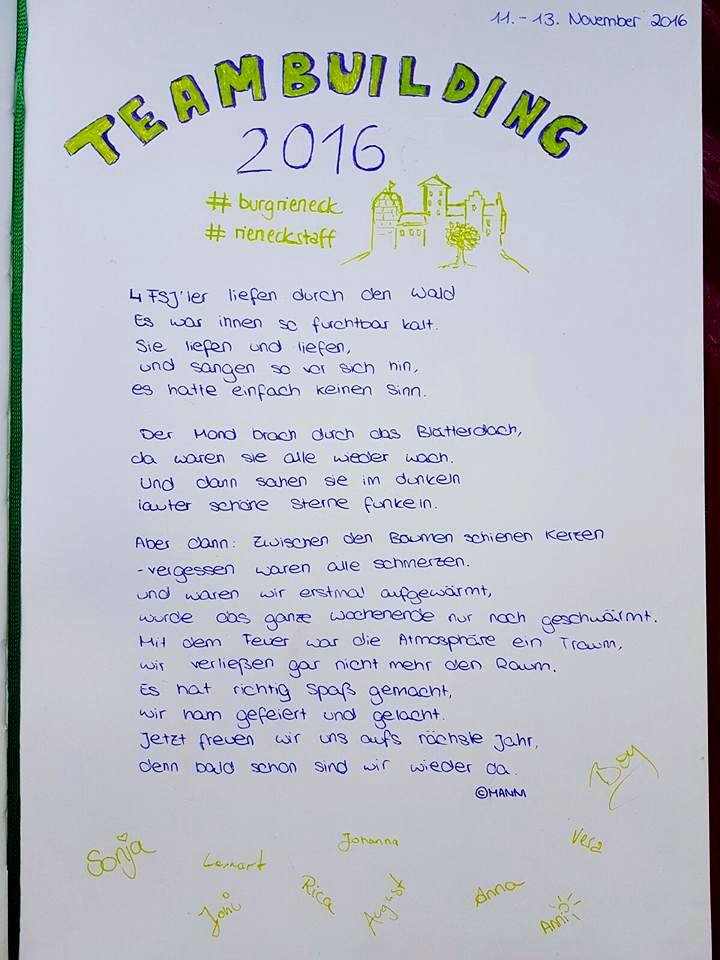 11. - 13. November 2016
TEAMBUILDING
2016
# burgrieneck
# rieneckstaff
4 FSJ'ler liefen durch den Wald
Es war ihnen so furchtbar kalt.
Sie liefen und liefen,
und sangen so vor sich hin,
es hatte einfach keinen Sinn.
Der Mond brach durch das Blätterdach,
da waren sie alle wieder wach.
Und dann sahen sie im dunkeln
lauter schöne Sterne funkeln.
Aber dann: Zwischen den Bäumen schienen Kerzen
- vergessen waren alle schmerzen.
und waren wir erstmal aufgewärmt,
wurde das ganze Wochenende nur noch geschwärmt.
Mit dem Feuer war die Atmosphäre ein Traum,
wir verließen gar nicht mehr den Raum.
Es hat richtig Spaß gemacht,
wir ham gefeiert und gelacht.
Jetzt freuen wir uns aufs nächste Jahr,
denn bald schon sind wir wieder da.
©MANN
Sonja
Lennart
Johanna
Vera
Rica
August
Anna
Anni